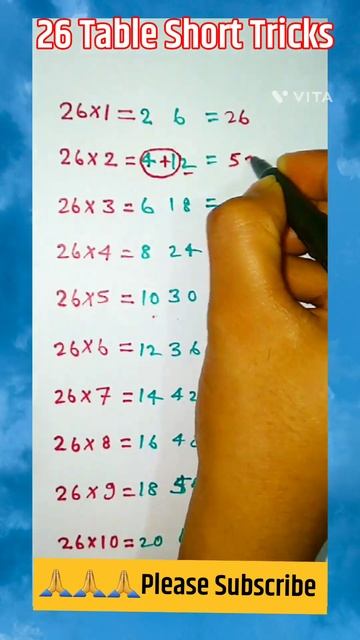 26 Table Short Tricks
VITA
26×1 = 2 6 = 26
26×2 = 4+12 = 5
26×3 = 6 18 =
26×4 = 8 24
26×5 = 10 30
26×6 = 12 36
26×7 = 14 42
26×8 = 16 4
26×9 = 18 5
26×10 = 20
🙏🙏🙏Please Subscribe